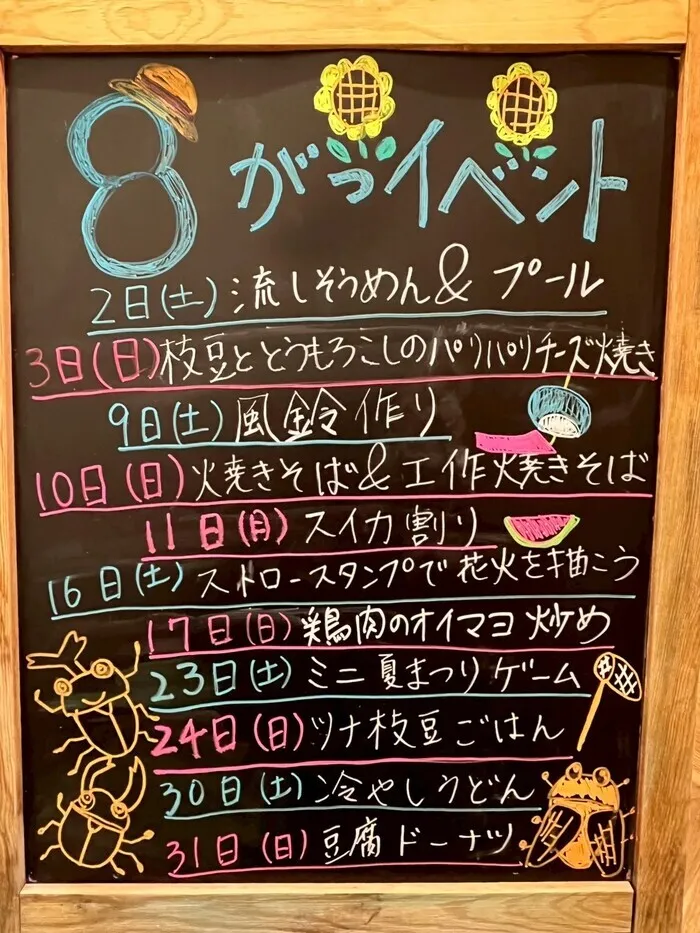 8がつイベント
2日(土)流しそうめん&プール
3日(日)枝豆ととうもろこしのパリパリチーズ焼き
9日(土)風鈴作り
10日(日)焼きそば&工作焼きそば
11日(月)スイカ割り
16日(土)ストロースタンプで花火を描こう
17日(日)鶏肉のオイマヨ炒め
23日(土)ミニ夏まつりゲーム
24日(日)ツナ枝豆ごはん
30日(土)冷やしうどん
31日(日)豆腐ドーナツ